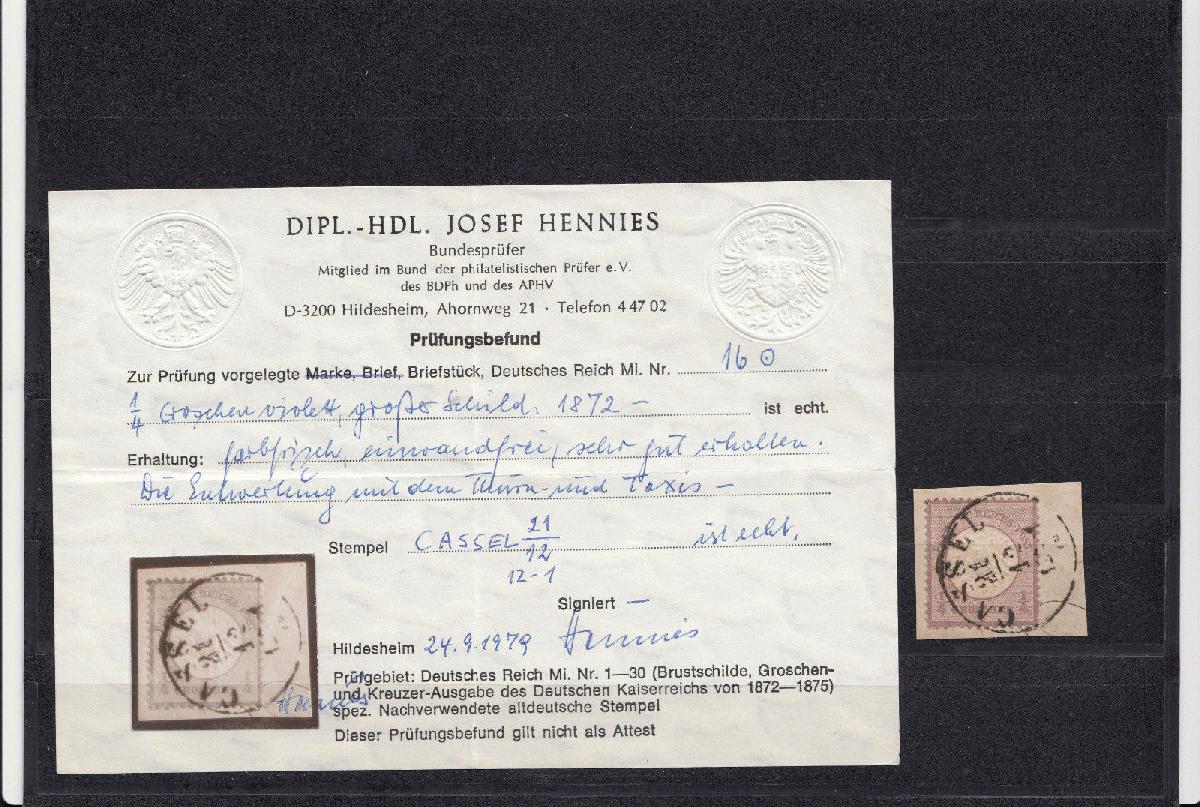 DIPL.-HDL. JOSEF HENNIES
Bundesprüfer
Mitglied im Bund der philatelistischen Prüfer e.V.
des BDPh und des APHV
D-3200 Hildesheim, Ahornweg 21 · Telefon 4 47 02
Prüfungsbefund
Zur Prüfung vorgelegte Marke, Brief, Briefstück, Deutsches Reich Mi. Nr. 16 ⊙
1/4 Groschen violett, großer Schild. 1872 — ist echt.
Erhaltung: farbfrisch, einwandfrei, sehr gut erhalten.
Die Entwertung mit dem Thurn- und Taxis —
Stempel CASSEL 21/12 ist echt.
12-1
Signiert —
Hildesheim 24.9.1979 Hennies
Prüfgebiet: Deutsches Reich Mi. Nr. 1—30 (Brustschilde, Groschen-
und Kreuzer-Ausgabe des Deutschen Kaiserreichs von 1872—1875)
spez. Nachverwendete altdeutsche Stempel
Dieser Prüfungsbefund gilt nicht als Attest
CASSEL
Hennies
CASSEL